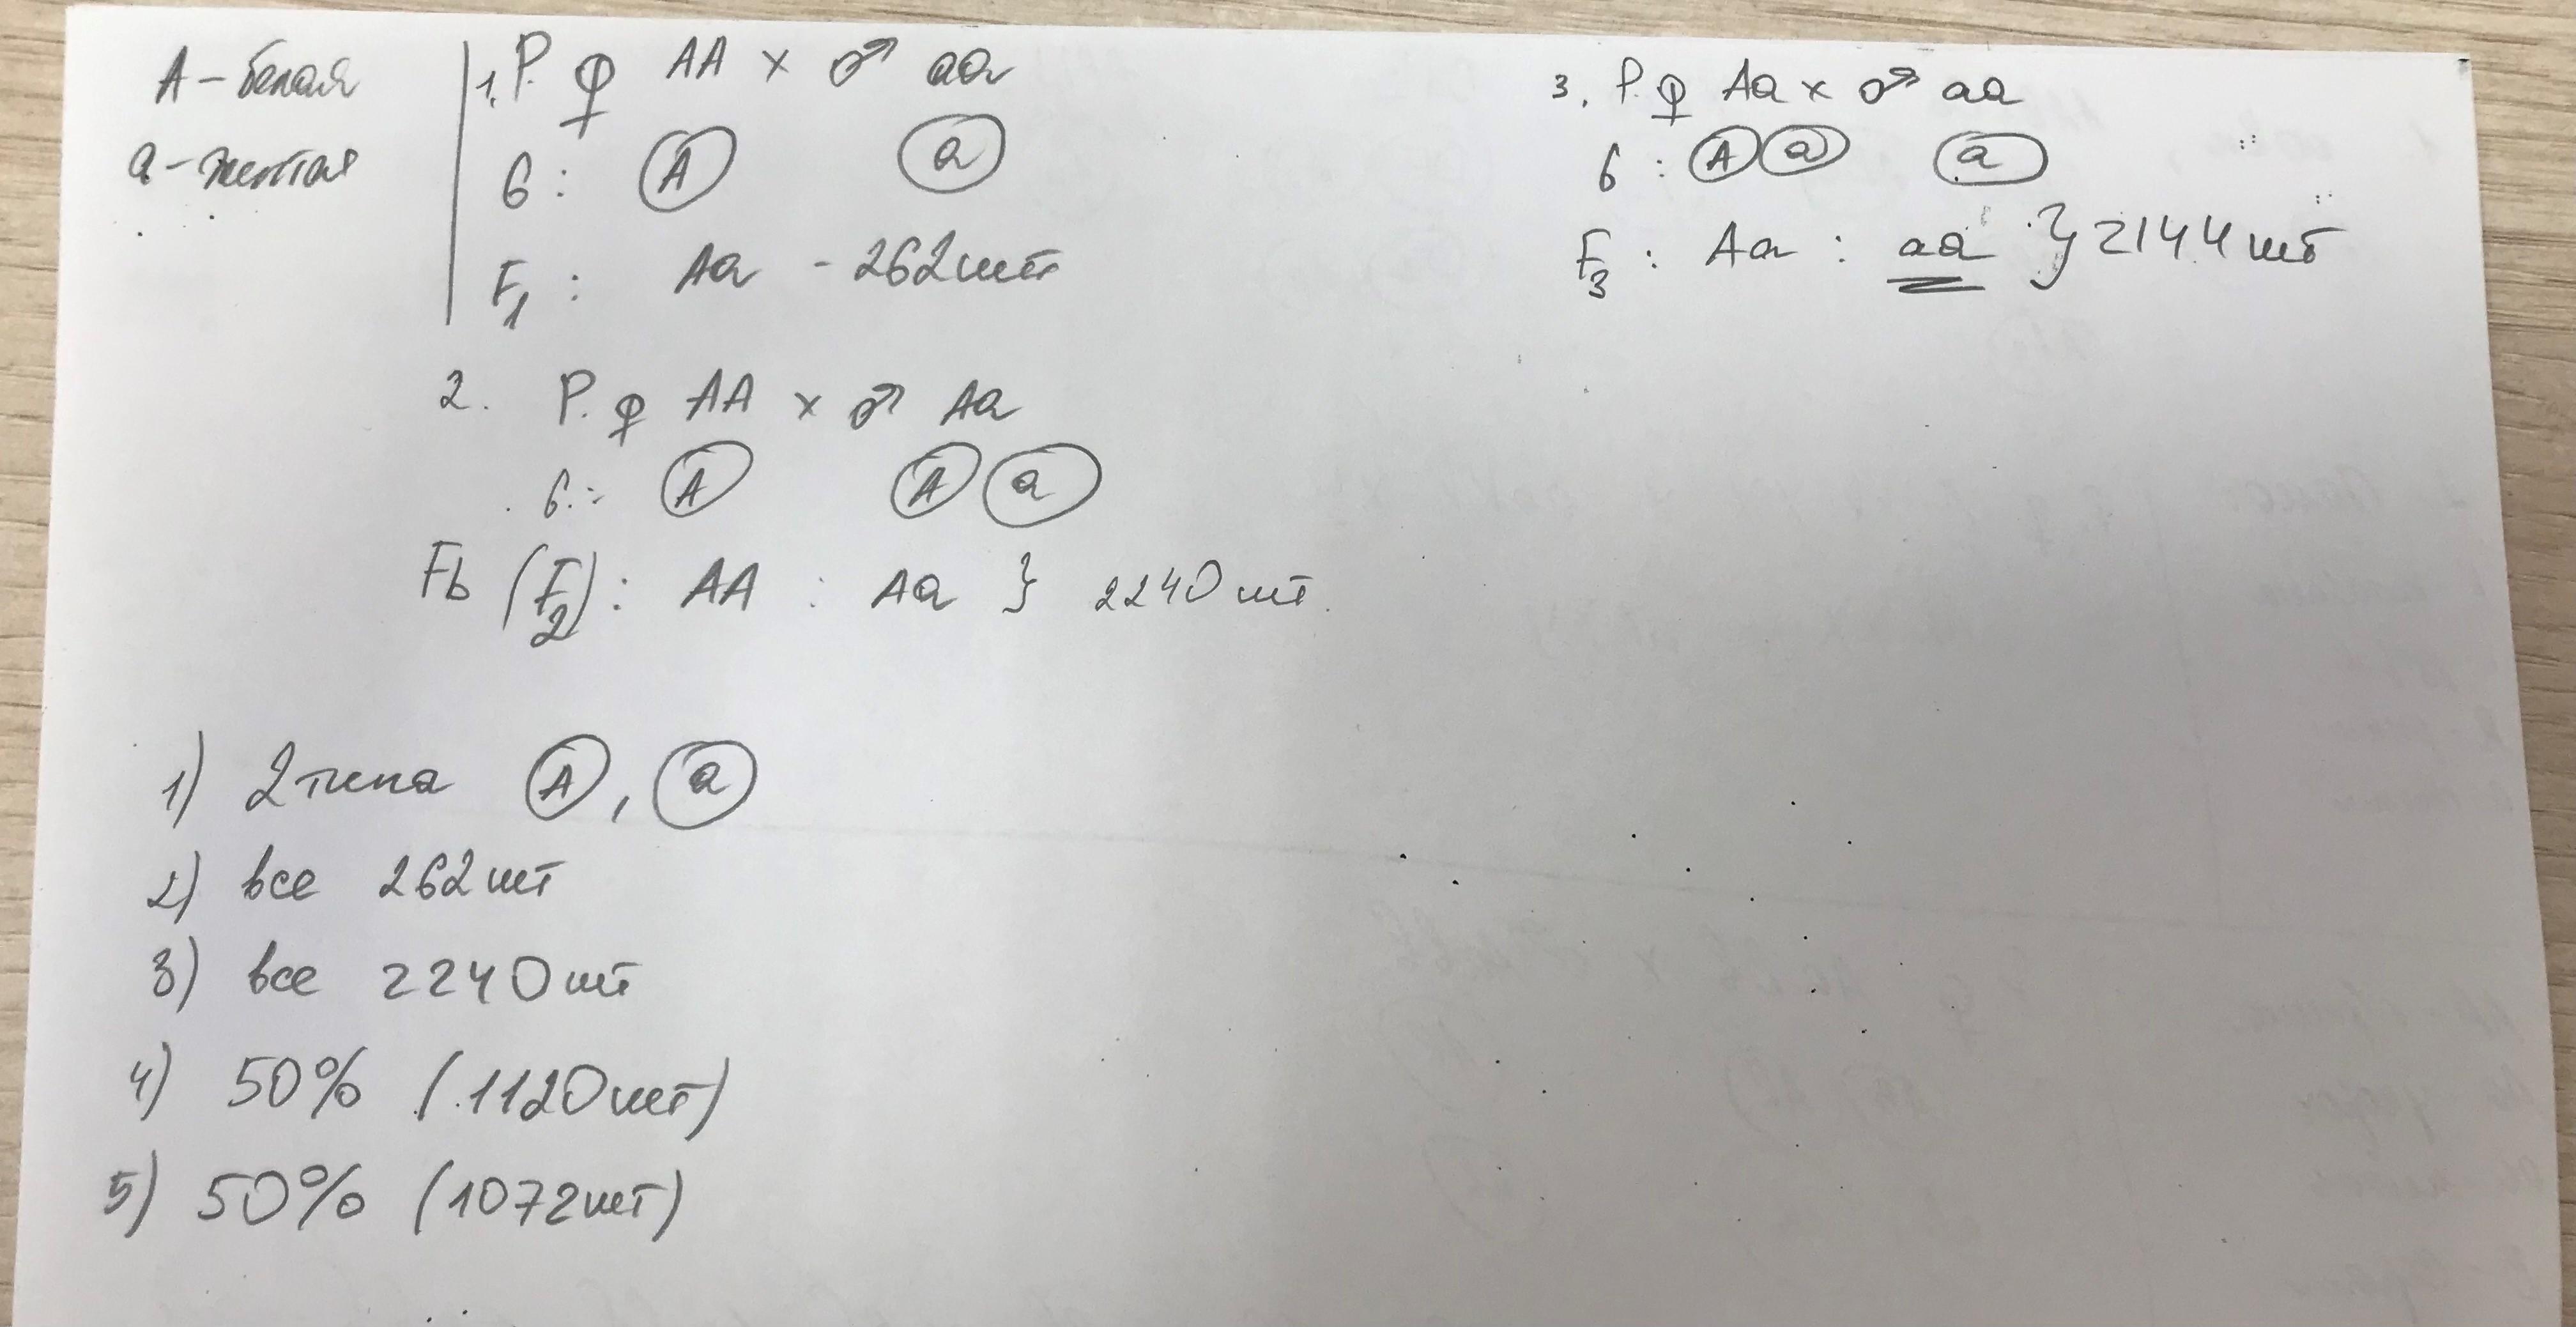 А - белая
а - желтая
1. P. ♀ АА × ♂ аа
G: А а
F1: Аа - 262шт
2. P. ♀ АА × ♂ Аа
G: А А а
Fb (F2): АА : Аа } 2240 шт.
3. P. ♀ Аа × ♂ аа
G: А а а
F3: Аа : аа } 2144 шт
1) 2 типа А, а
2) все 262шт
3) все 2240шт
4) 50% (1120шт)
5) 50% (1072шт)